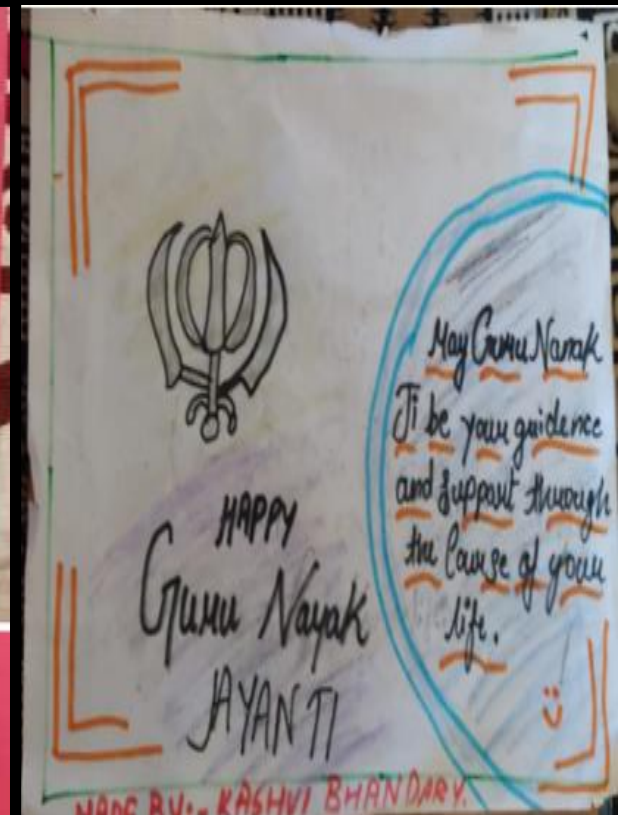 HAPPY
Guru Nayak
JAYANTI
May Guru Nanak
Ji be your guidence
and support through
the Course of your
life.
MADE BY:- KASHVI BHANDARY.